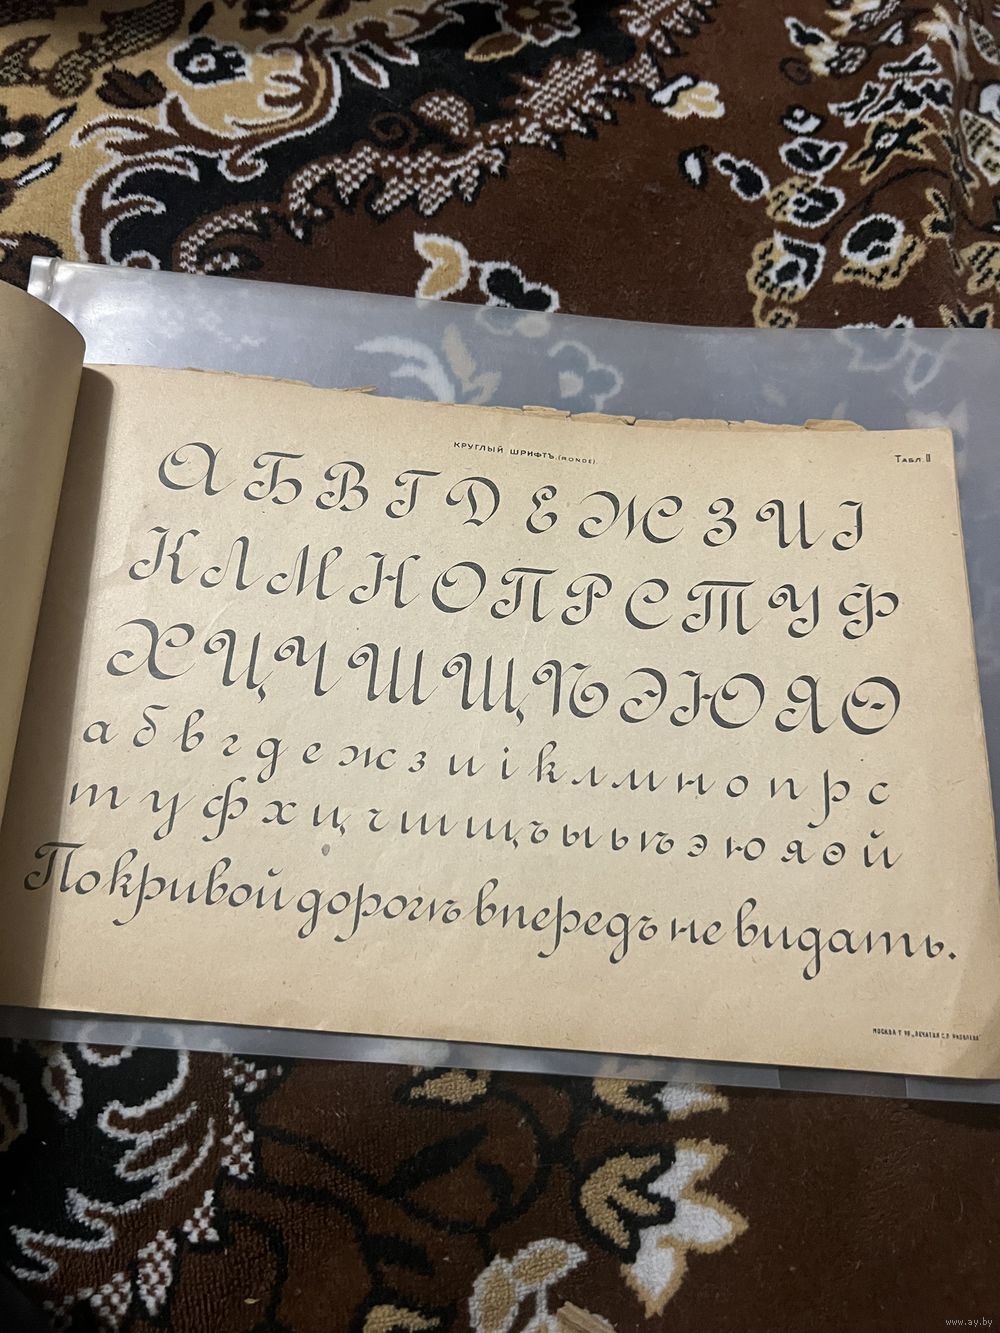 КРУГЛЫЙ ШРИФТЪ.(RONDE).
Табл. II
А Б В Г Д Е Ж З И І
К Л М Н О П Р С Т У Ф
Х Ц Ч Ш Щ Ѣ Э Ю Я Ѳ
а б в г д е ж з и і к л м н о п р с
т у ф х ц ч ш щ ъ ы ь ѣ э ю я ѳ й
По кривой дорогѣ впередъ не видать.
МОСКВА Т 90 „ПЕЧАТНЯ С.П. ЯКОВЛЕВА"
www.ay.by